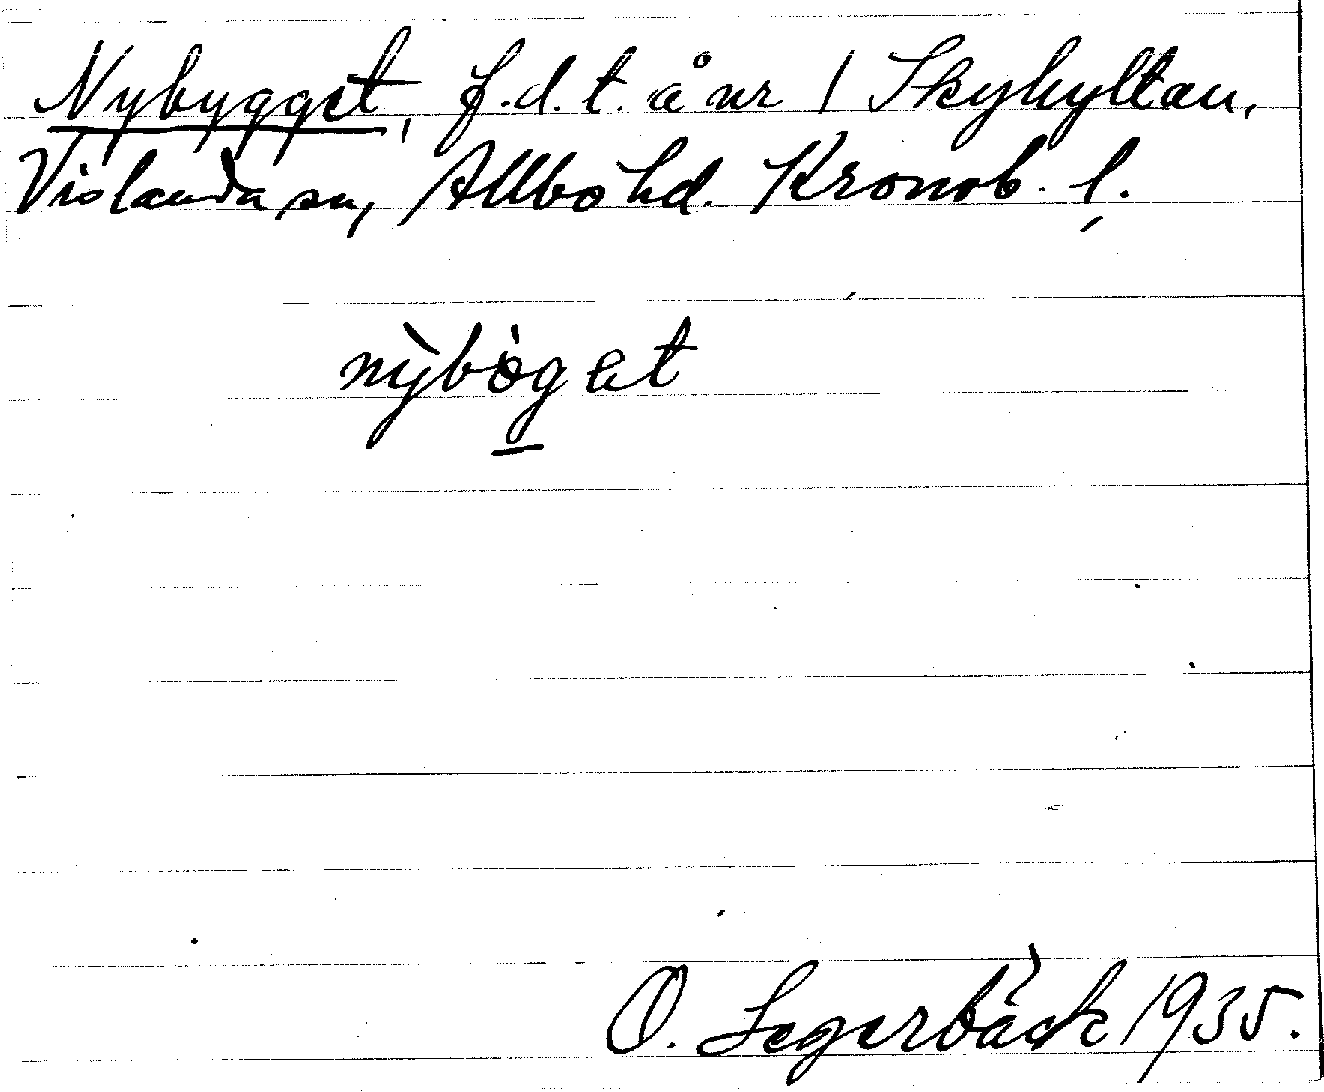 Nybygget, f.d.t. å nr 1 Skyhyltan,
Vislanda sn, Allbo hd. Kronob. l.
nỳbògət
O. Segerbäck 1935.